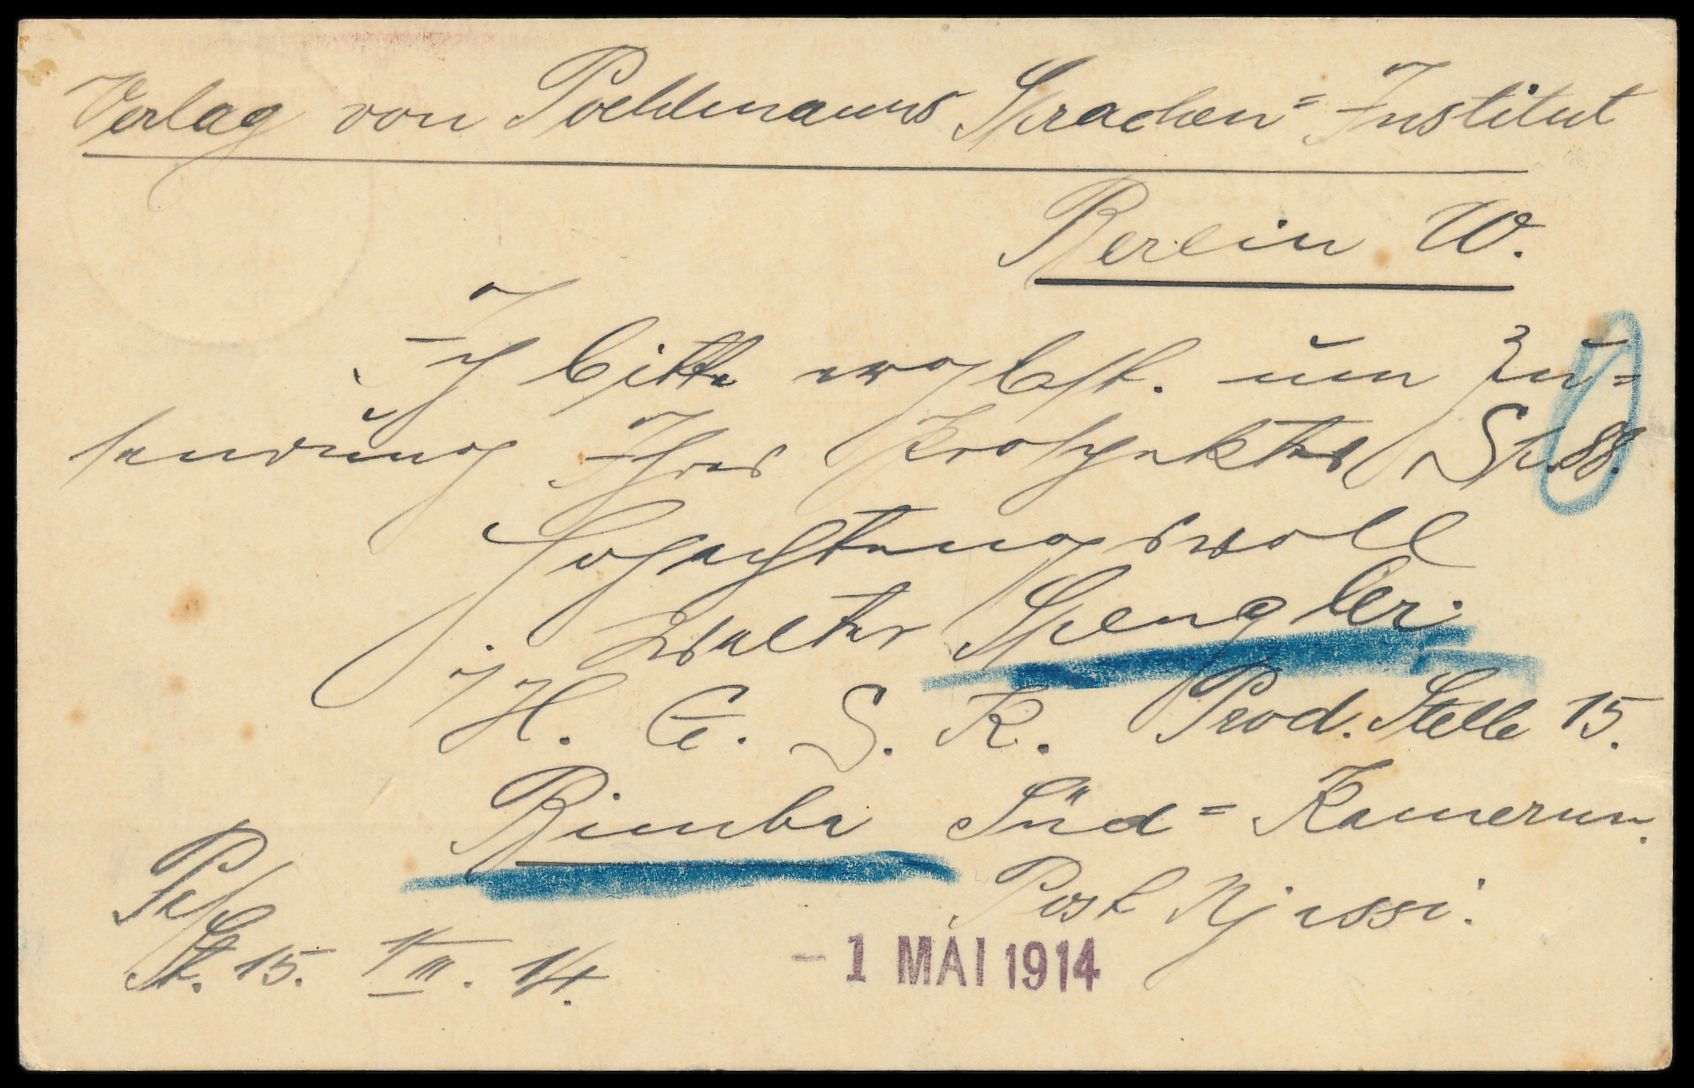 Verlag von Poehlmanns Sprachen=Institut
Berlin W.
Ich bitte ergbst. um Zu=
sendung Ihres Prospektes Sp. 88.
Hochachtungsvoll
Walter Spengler.
i/ H. G. S. K. Prod. Stelle 15.
Bimba Süd=Kamerun.
Post Njassi.
St. 15. III. 14.
- 1 MAI 1914